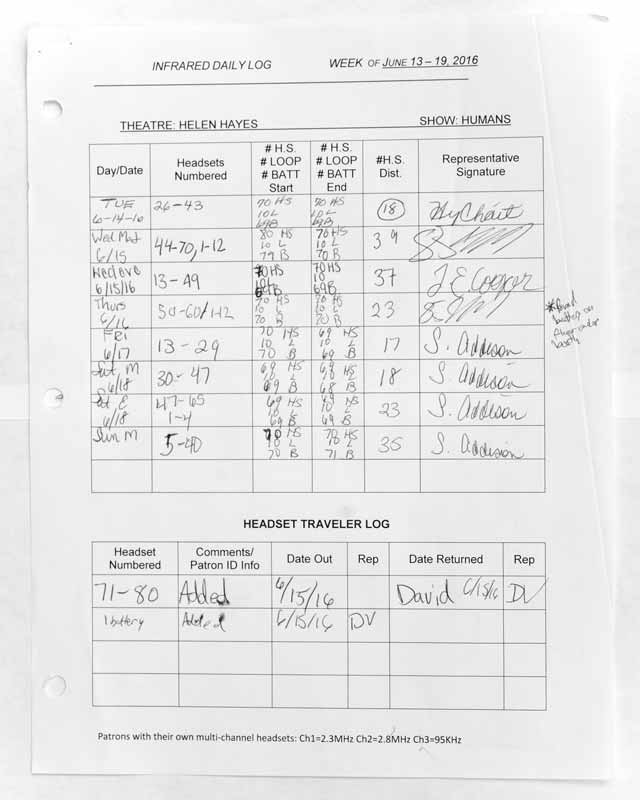 INFRARED DAILY LOG WEEK OF JUNE 13 – 19, 2016
THEATRE: HELEN HAYES SHOW: HUMANS
Day/Date Headsets Numbered # H.S. # LOOP # BATT Start # H.S. # LOOP # BATT End #H.S. Dist. Representative Signature
TUE 6-14-16 26-43 70 HS 10 L 69 B 70 HS 10 L 69 B 18
Wed Mat 6/15 44-70, 1-12 80 HS 10 L 79 B 70 HS 10 L 70 B 39
Wed eve 6/15/16 13-49 70 HS 70 HS 10 69 B 37 J E Cooper
Thurs 6/16 50-60/1-12 70 HS 10 L 70 B 70 HS 10 L 70 B 23
FRI 6/17 13-29 70 HS 10 L 70 B 69 HS 10 L 69 B 17 S. Addison
Sat, M 6/18 30-47 69 HS 10 L 69 B 68 HS 10 L 68 B 18 S. Addison
Sat E 6/18 47-65 1-4 69 HS 10 L 69 B 69 HS 10 L 69 B 23 S. Addison
Sun M 5-40 70 HS 10 L 70 B 70 HS 10 L 71 B 35 S. Addision
HEADSET TRAVELER LOG
Headset Numbered Comments/ Patron ID Info Date Out Rep Date Returned Rep
71-80 Added 6/15/16 David 6/15/16 DV
1 battery Added 6/15/16 DV
Patrons with their own multi-channel headsets: Ch1=2.3MHz Ch2=2.8MHz Ch3=95KHz